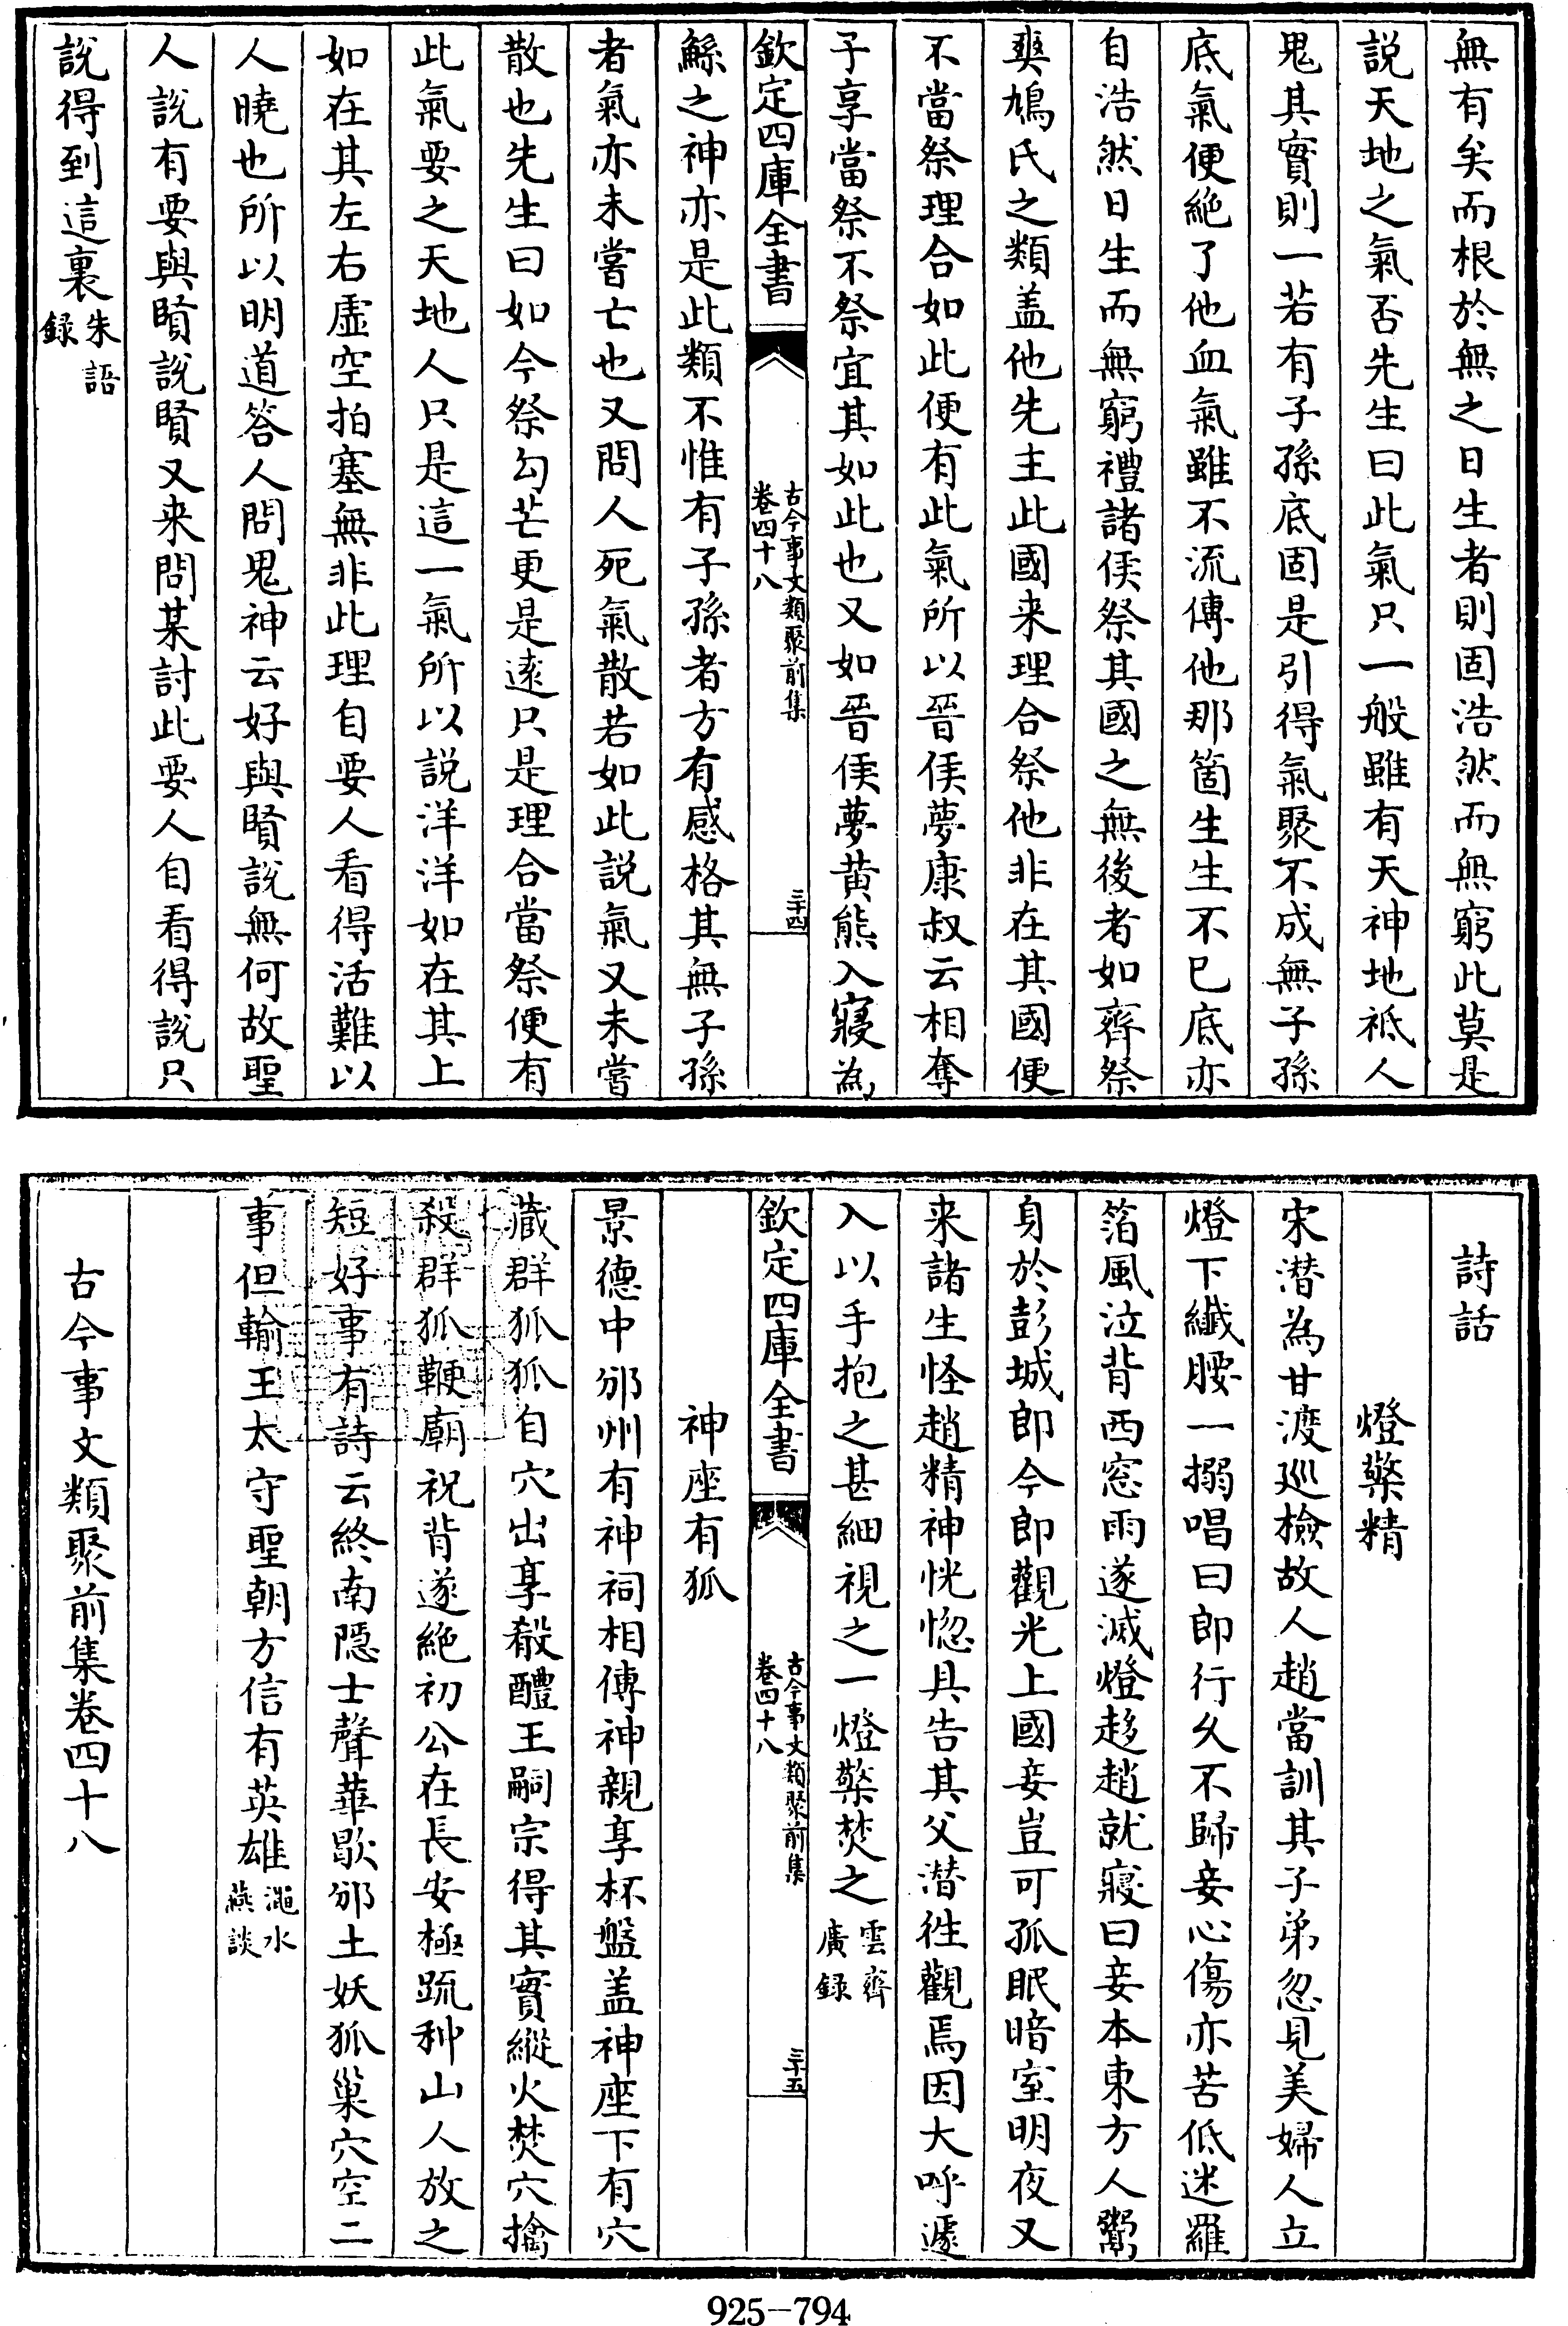 無有矣而根於無之日生者則固浩然而無窮此莫是
説天地之氣否先生曰此氣只一般雖有天神地祇人
鬼其實則一若有子孫底固是引得氣聚不成無子孫
底氣便絶了他血氣雖不流傳他那箇生生不已底亦
自浩然日生而無窮禮諸侯祭其國之無後者如齊祭
爽鳩氏之類盖他先主此國来理合祭他非在其國便
不當祭理合如此便有此氣所以晉侯夢康叔云相奪
子享當祭不祭宜其如此也又如晉侯夢黄熊入寢為
欽定四庫全書
古今事文類聚前集
卷四十八
三十四
鯀之神亦是此類不惟有子孫者方有感格其無子孫
者氣亦未嘗亡也又問人死氣散若如此説氣又未嘗
散也先生曰如今祭勾芒更是逺只是理合當祭便有
此氣要之天地人只是這一氣所以説洋洋如在其上
如在其左右虚空拍塞無非此理自要人看得活難以
人曉也所以明道答人問鬼神云好與賢説無何故聖
人説有要與賢説賢又来問某討此要人自看得説只
説得到這裏朱語
録
詩話
燈檠精
宋潜為甘渡巡檢故人趙當訓其子弟忽見美婦人立
燈下纖腰一搦唱曰郎行久不歸妾心傷亦苦低迷羅
箔風泣背西窓雨遂滅燈趍趙就寢曰妾本東方人鬻
身於彭城郎今郎觀光上國妾豈可孤眠暗室明夜又
来諸生怪趙精神恍惚具告其父潜徃觀焉因大呼遽
入以手抱之甚細視之一燈檠焚之雲齋
廣録
欽定四庫全書
古今事文類聚前集
卷四十八
三十五
神座有狐
景德中邠州有神祠相傳神親享杯盤盖神座下有穴
藏群狐狐自穴出享殽醴王嗣宗得其實縱火焚穴擒
殺群狐鞭廟祝背遂絶初公在長安極䟽种山人放之
短好事有詩云終南隠士聲華歇邠土妖狐巢穴空二
事但輸王太守聖朝方信有英雄澠水
燕談
古今事文類聚前集卷四十八
925-794